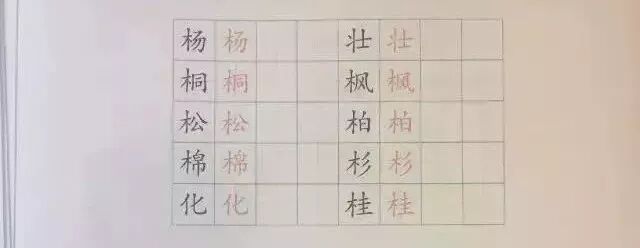 杨 杨 壮 壮
桐 桐 枫 枫
松 松 柏 柏
棉 棉 杉 杉
化 化 桂 桂